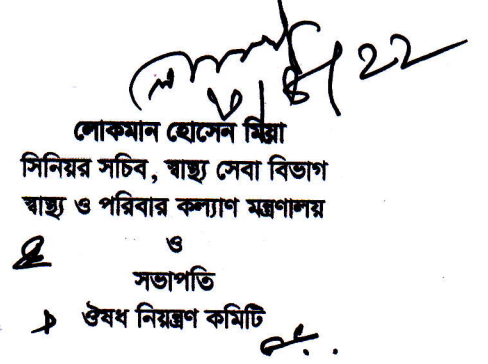 লোকমান হোসেন মিয়া
সিনিয়র সচিব, স্বাস্থ্য সেবা বিভাগ
স্বাস্থ্য ও পরিবার কল্যাণ মন্ত্রণালয়
ও
সভাপতি
ঔষধ নিয়ন্ত্রণ কমিটি